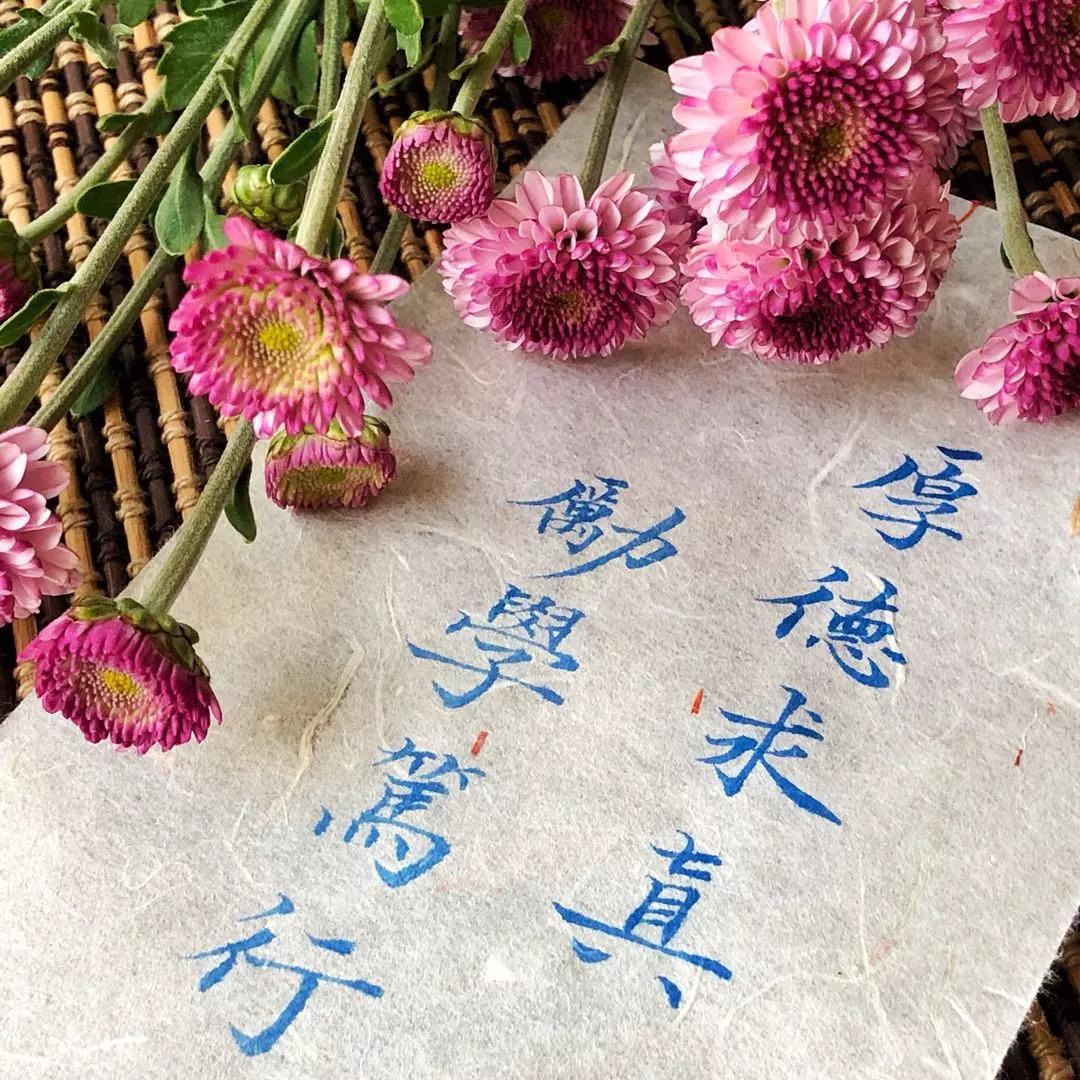 厚德求真
勵學篤行